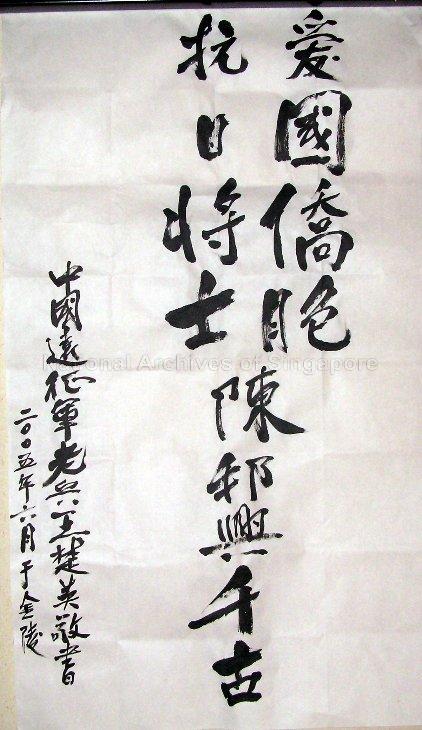 爱國僑胞
抗日将士
陳邦興千古
中国遠征軍老兵王楚英敬書
二〇〇五年六月于金陵
National Archives of Singapore